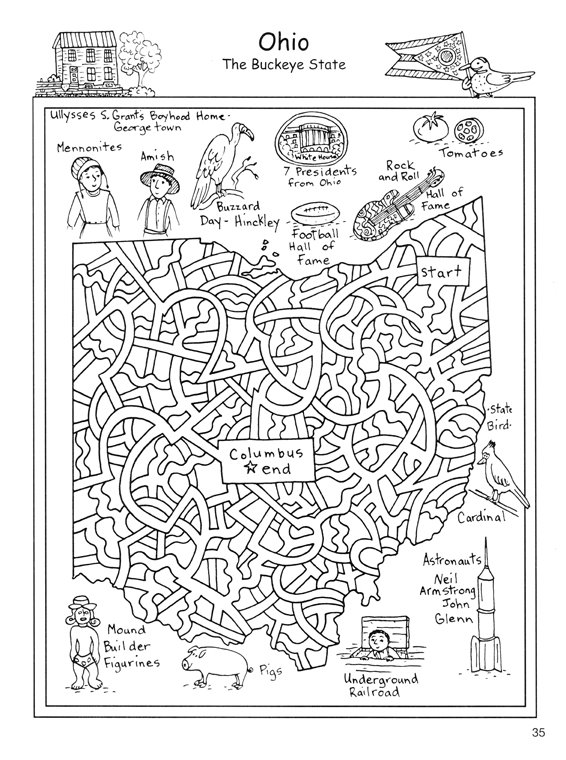 Ohio
The Buckeye State
Ullysses S. Grant's Boyhood Home -
Georgetown
Mennonites
Amish
Buzzard
Day - Hinckley
White House
7 Presidents
from Ohio
Football
Hall of
Fame
Rock
and Roll
Hall of
Fame
Tomatoes
Start
Columbus
end
·State
Bird·
Cardinal
Astronauts
Neil
Armstrong
John
Glenn
Mound
Builder
Figurines
Pigs
Underground
Railroad
35